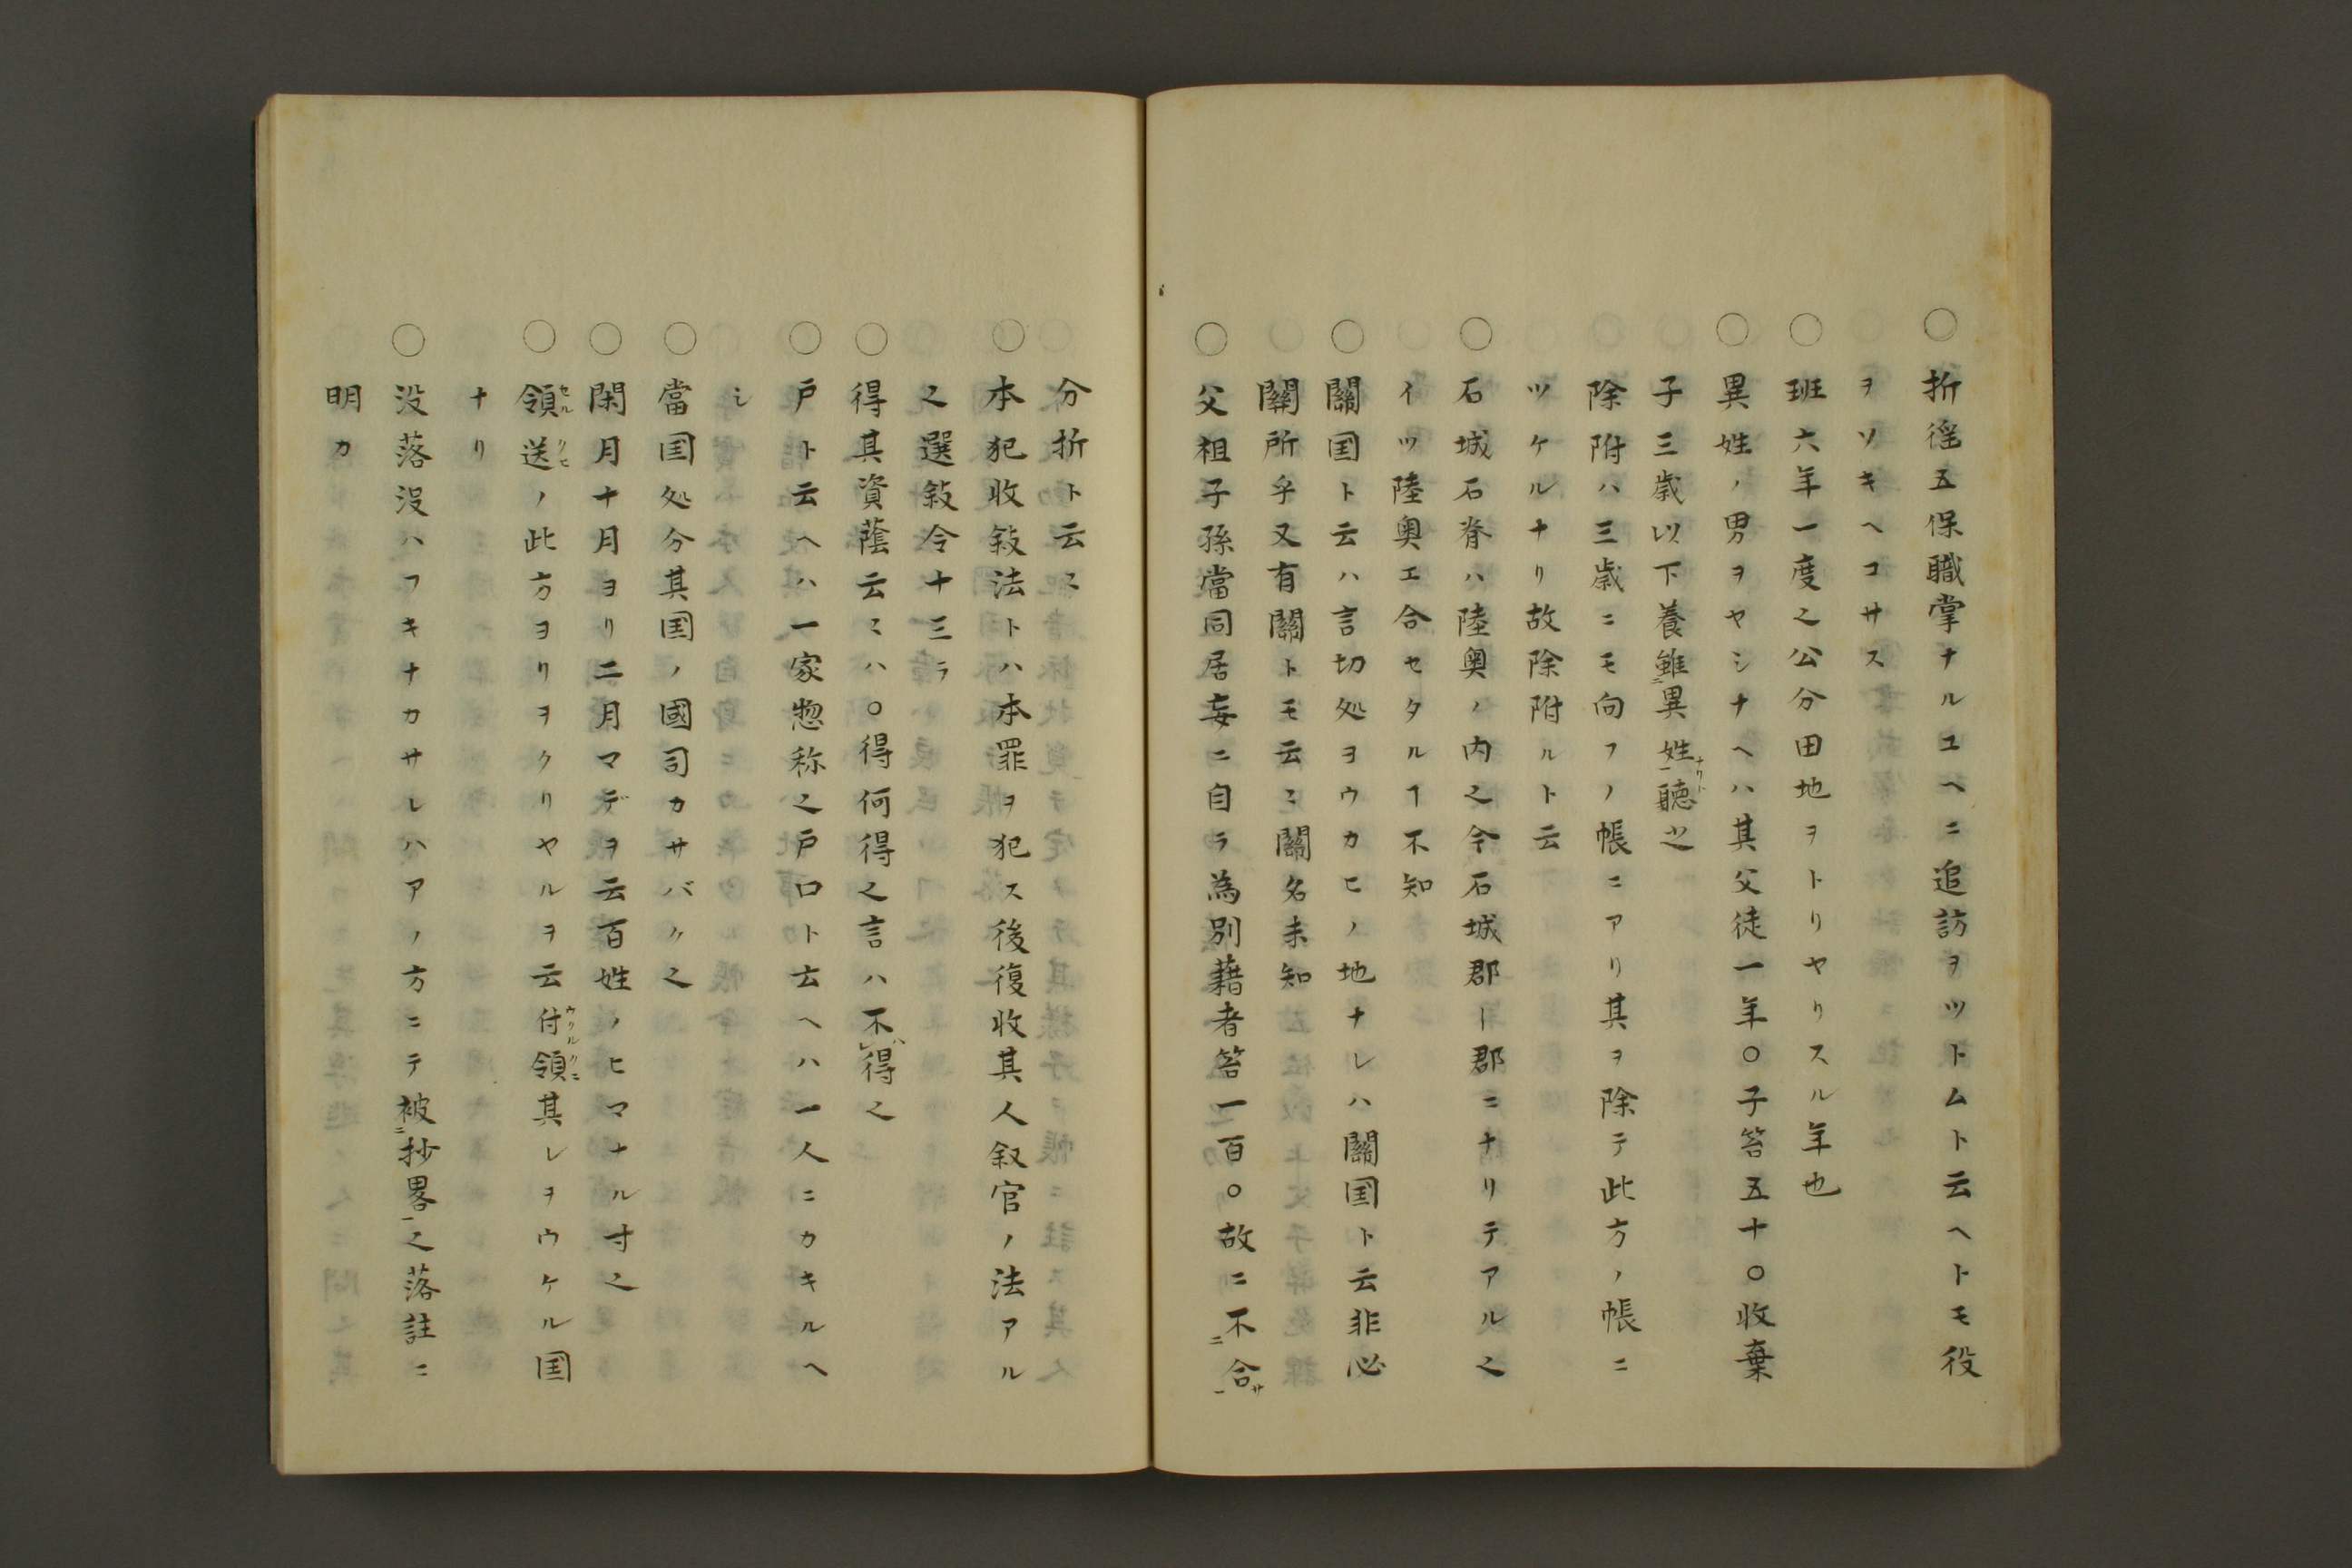 ○折徭五保職掌ナルユヘニ追訪ヲツトムト云ヘトモ役
ヲソキヘコサス
○班六年一度之公分田地ヲトリヤリスル年也
○異姓ノ男ヲヤシナヘハ其父徒一年○子笞五十○收棄
子三歳以下養雖ニ異姓一ナリト聴之
除附ハ三歳ニモ向フノ帳ニアリ其ヲ除テ此方ノ帳ニ
ツケルナリ故除附ルト云
○石城石脊ハ陸奥ノ内之今石城郡ト郡ニナリテアル之
イツ陸奥エ合セタルヿ不知
○關国ト云ハ言切処ヲウカヒノ地ナレハ關国ト云非必
關所乎又有關トモ云ヽ關名未知
○父祖子孫當同居妄ニ自ラ為別籍者笞一百○故ニ不ニ合一サ
分折ト云ヽ
○本犯收敍法トハ本罪ヲ犯ス後復收其人叙官ノ法アル
之選敍令十三ラ
○得其資蔭云ヽハ○得何得之言ハ不レ得ハ之
○戸ト云ヘハ一家惣称之戸口ト云ヘハ一人ニカキルヘ
シ
○當国処分其国ノ國司カサバク之
○閑月十月ヨリ二月マデヲ云百姓ノヒマナル寸之
○領セル送クセノ此方ヨリヲクリヤルヲ云付ウクル領クニ其レヲウケル国
ナリ
○没落没ハフキナカサレハアノ方ニテ被ニ抄畧一之落註ニ
明カ